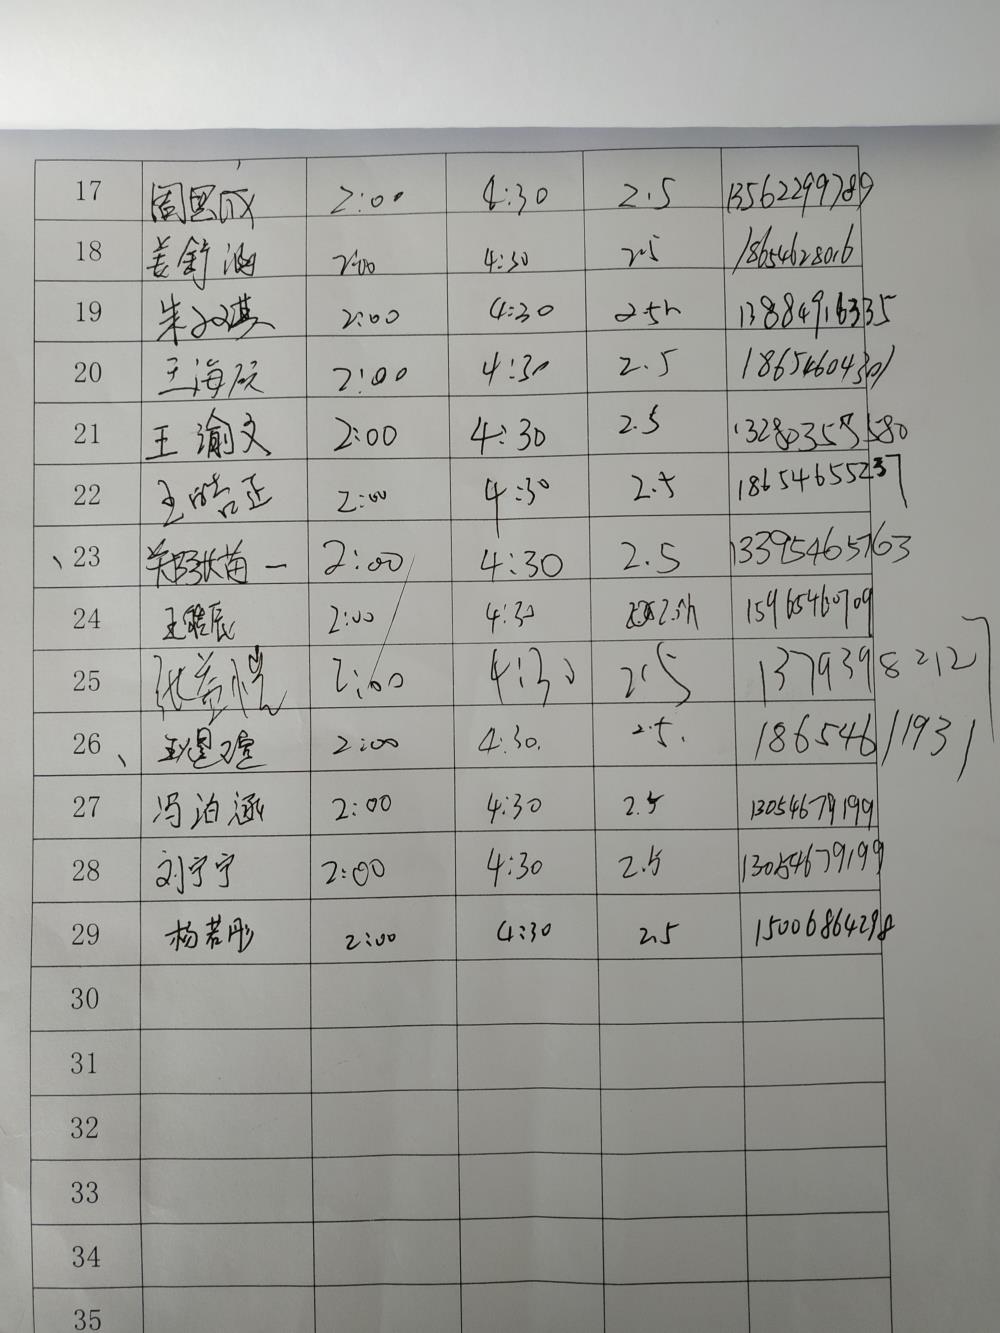 17 周恩成 2:00 4:30 2.5 13562299789
18 姜舒涵 2:00 4:30 2.5 18654628016
19 朱 2:00 4:30 2.5h 13884916335
20 王海辰 2:00 4:30 2.5 18654604301
21 王渝文 2:00 4:30 2.5 13280357580
22 王皓正 2:00 4:30 2.5 18654655237
23 2:00 4:30 2.5 13395465763
24 王皓辰 2:00 4:30 2.5h 15965460709
25 张益悦 2:00 4:30 2.5 13793982127
26 2:00 4:30. 2.5. 18654611931
27 冯泊涵 2:00 4:30 2.5 13054679199
28 刘宁宁 2:00 4:30 2.5 13054679199
29 杨若彤 2:00 4:30 2.5 15006864298
30
31
32
33
34
35